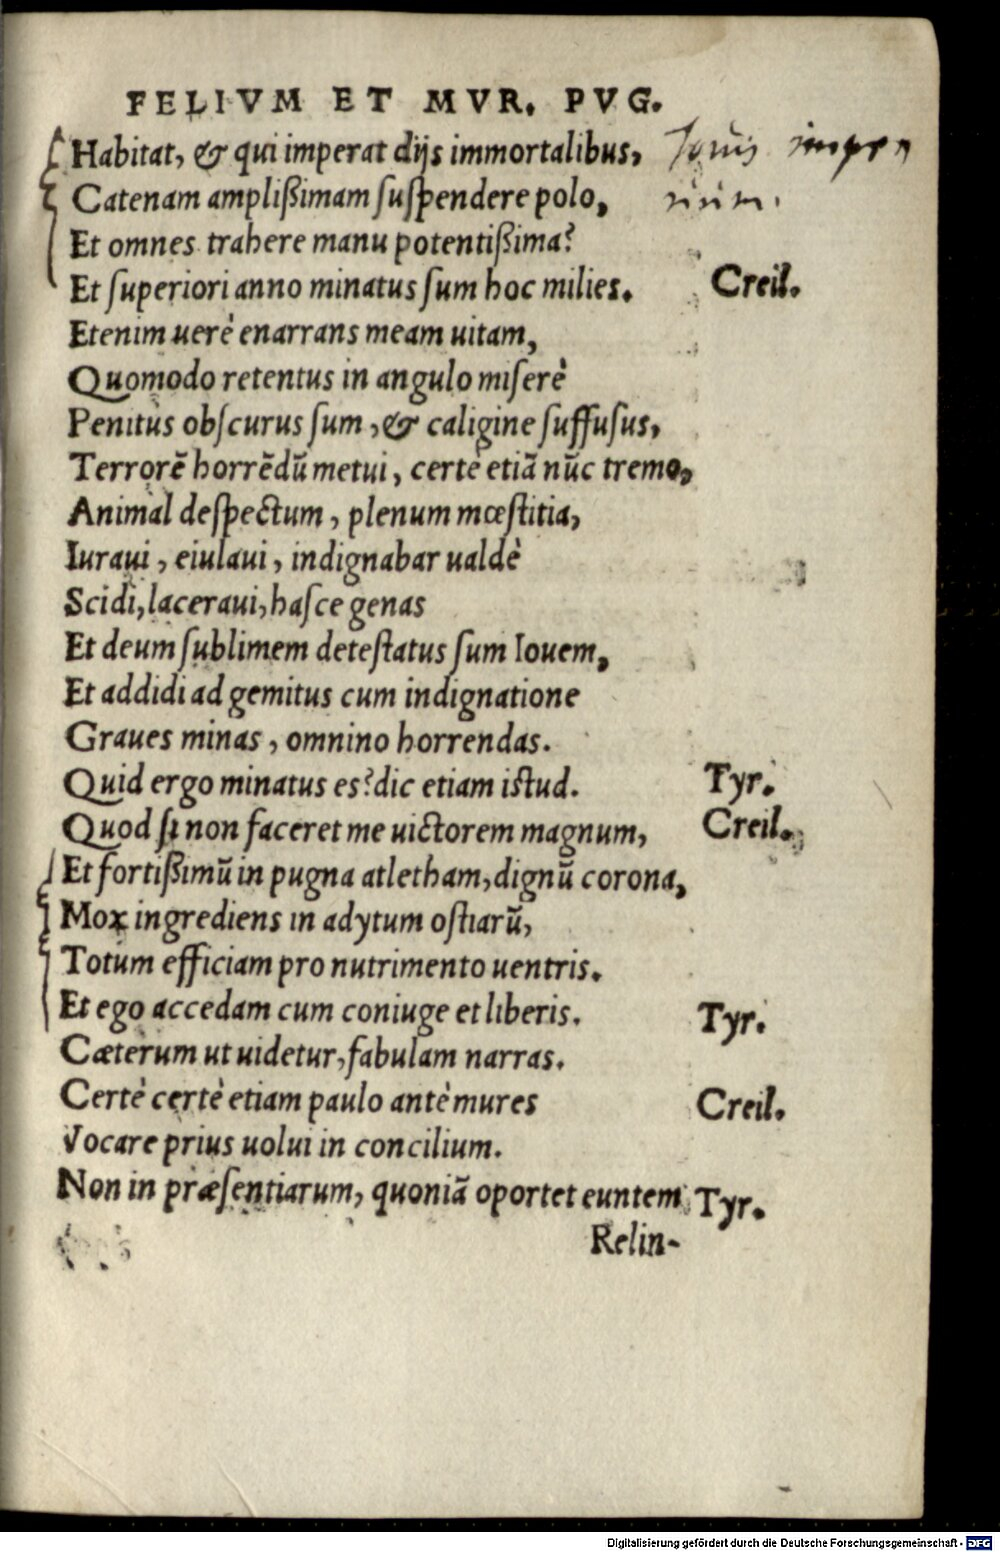 FELIVM ET MVR. PVG.
Habitat, & qui imperat dijs immortalibus, Iouis impe
rium.
Catenam ampliſſimam ſuſpendere polo,
Et omnes trahere manu potentiſſima?
Et ſuperiori anno minatus ſum hoc milies. Creil.
Etenim uerè enarrans meam uitam,
Quomodo retentus in angulo miſerè
Penitus obſcurus ſum, & caligine ſuffuſus,
Terrorē horrēdū metui, certè etiā nūc tremo,
Animal deſpectum, plenum mœſtitia,
Iuraui, eiulaui, indignabar ualdè
Scidi, laceraui, haſce genas
Et deum ſublimem deteſtatus ſum Iouem,
Et addidi ad gemitus cum indignatione
Graues minas, omnino horrendas.
Quid ergo minatus es? dic etiam istud. Tyr.
Quod ſi non faceret me uictorem magnum, Creil.
Et fortiſſimū in pugna atletham, dignū corona,
Mox ingrediens in adytum oſtiarū,
Totum efficiam pro nutrimento uentris.
Et ego accedam cum coniuge et liberis. Tyr.
Cæterum ut uidetur, fabulam narras.
Certè certè etiam paulo antè mures Creil.
Vocare prius uolui in concilium.
Non in præſentiarum, quoniā oportet euntem Tyr.
Relin-
Digitalisierung gefördert durch die Deutsche Forschungsgemeinschaft - DFG